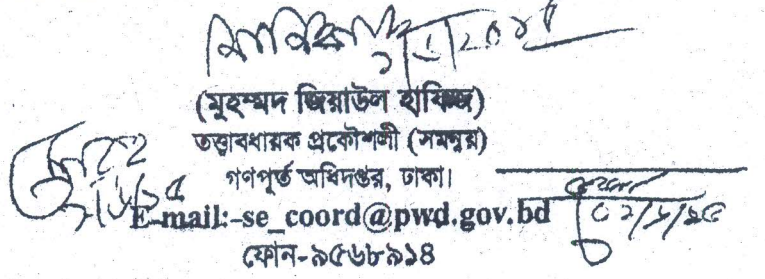 (মুহম্মদ জিয়াউল হাফিজ)
তত্ত্বাবধায়ক প্রকৌশলী (সমন্বয়)
গণপূর্ত অধিদপ্তর, ঢাকা।
E-mail:-se_coord@pwd.gov.bd
ফোন-৯৫৬৮৯১৪